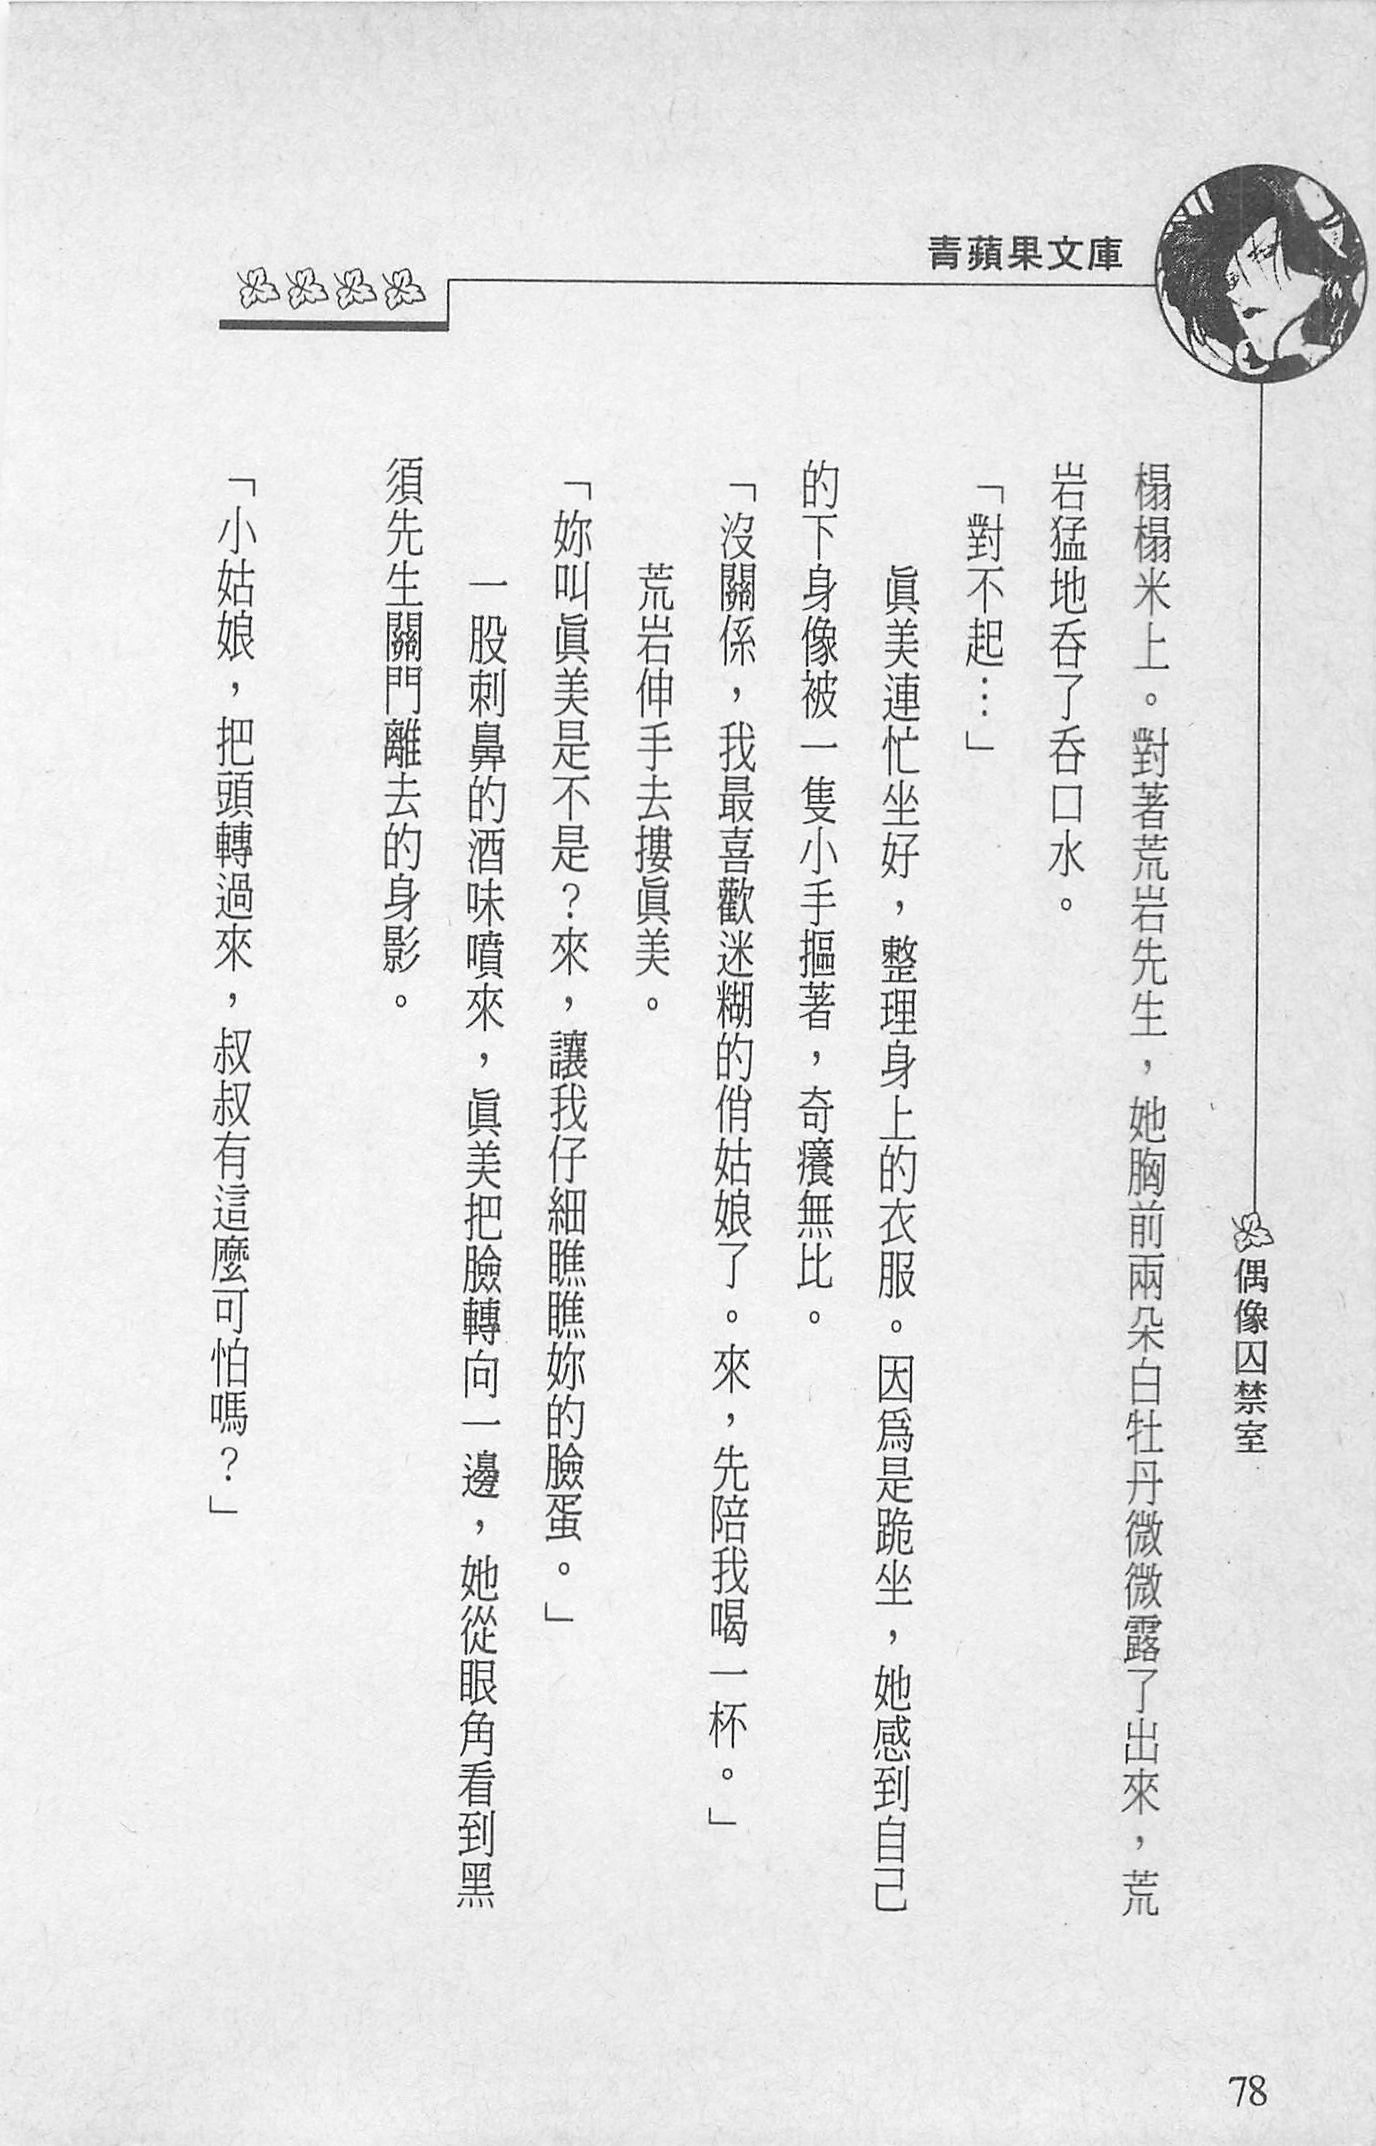 青蘋果文庫
偶像囚禁室
榻榻米上。對著荒岩先生，她胸前兩朵白牡丹微微露了出來，荒
岩猛地吞了吞口水。
「對不起…」
眞美連忙坐好，整理身上的衣服。因爲是跪坐，她感到自己
的下身像被一隻小手摳著，奇癢無比。
「沒關係，我最喜歡迷糊的俏姑娘了。來，先陪我喝一杯。」
荒岩伸手去摟眞美。
「妳叫眞美是不是？來，讓我仔細瞧瞧妳的臉蛋。」
一股刺鼻的酒味噴來，眞美把臉轉向一邊，她從眼角看到黑
須先生關門離去的身影。
「小姑娘，把頭轉過來，叔叔有這麼可怕嗎？」
78